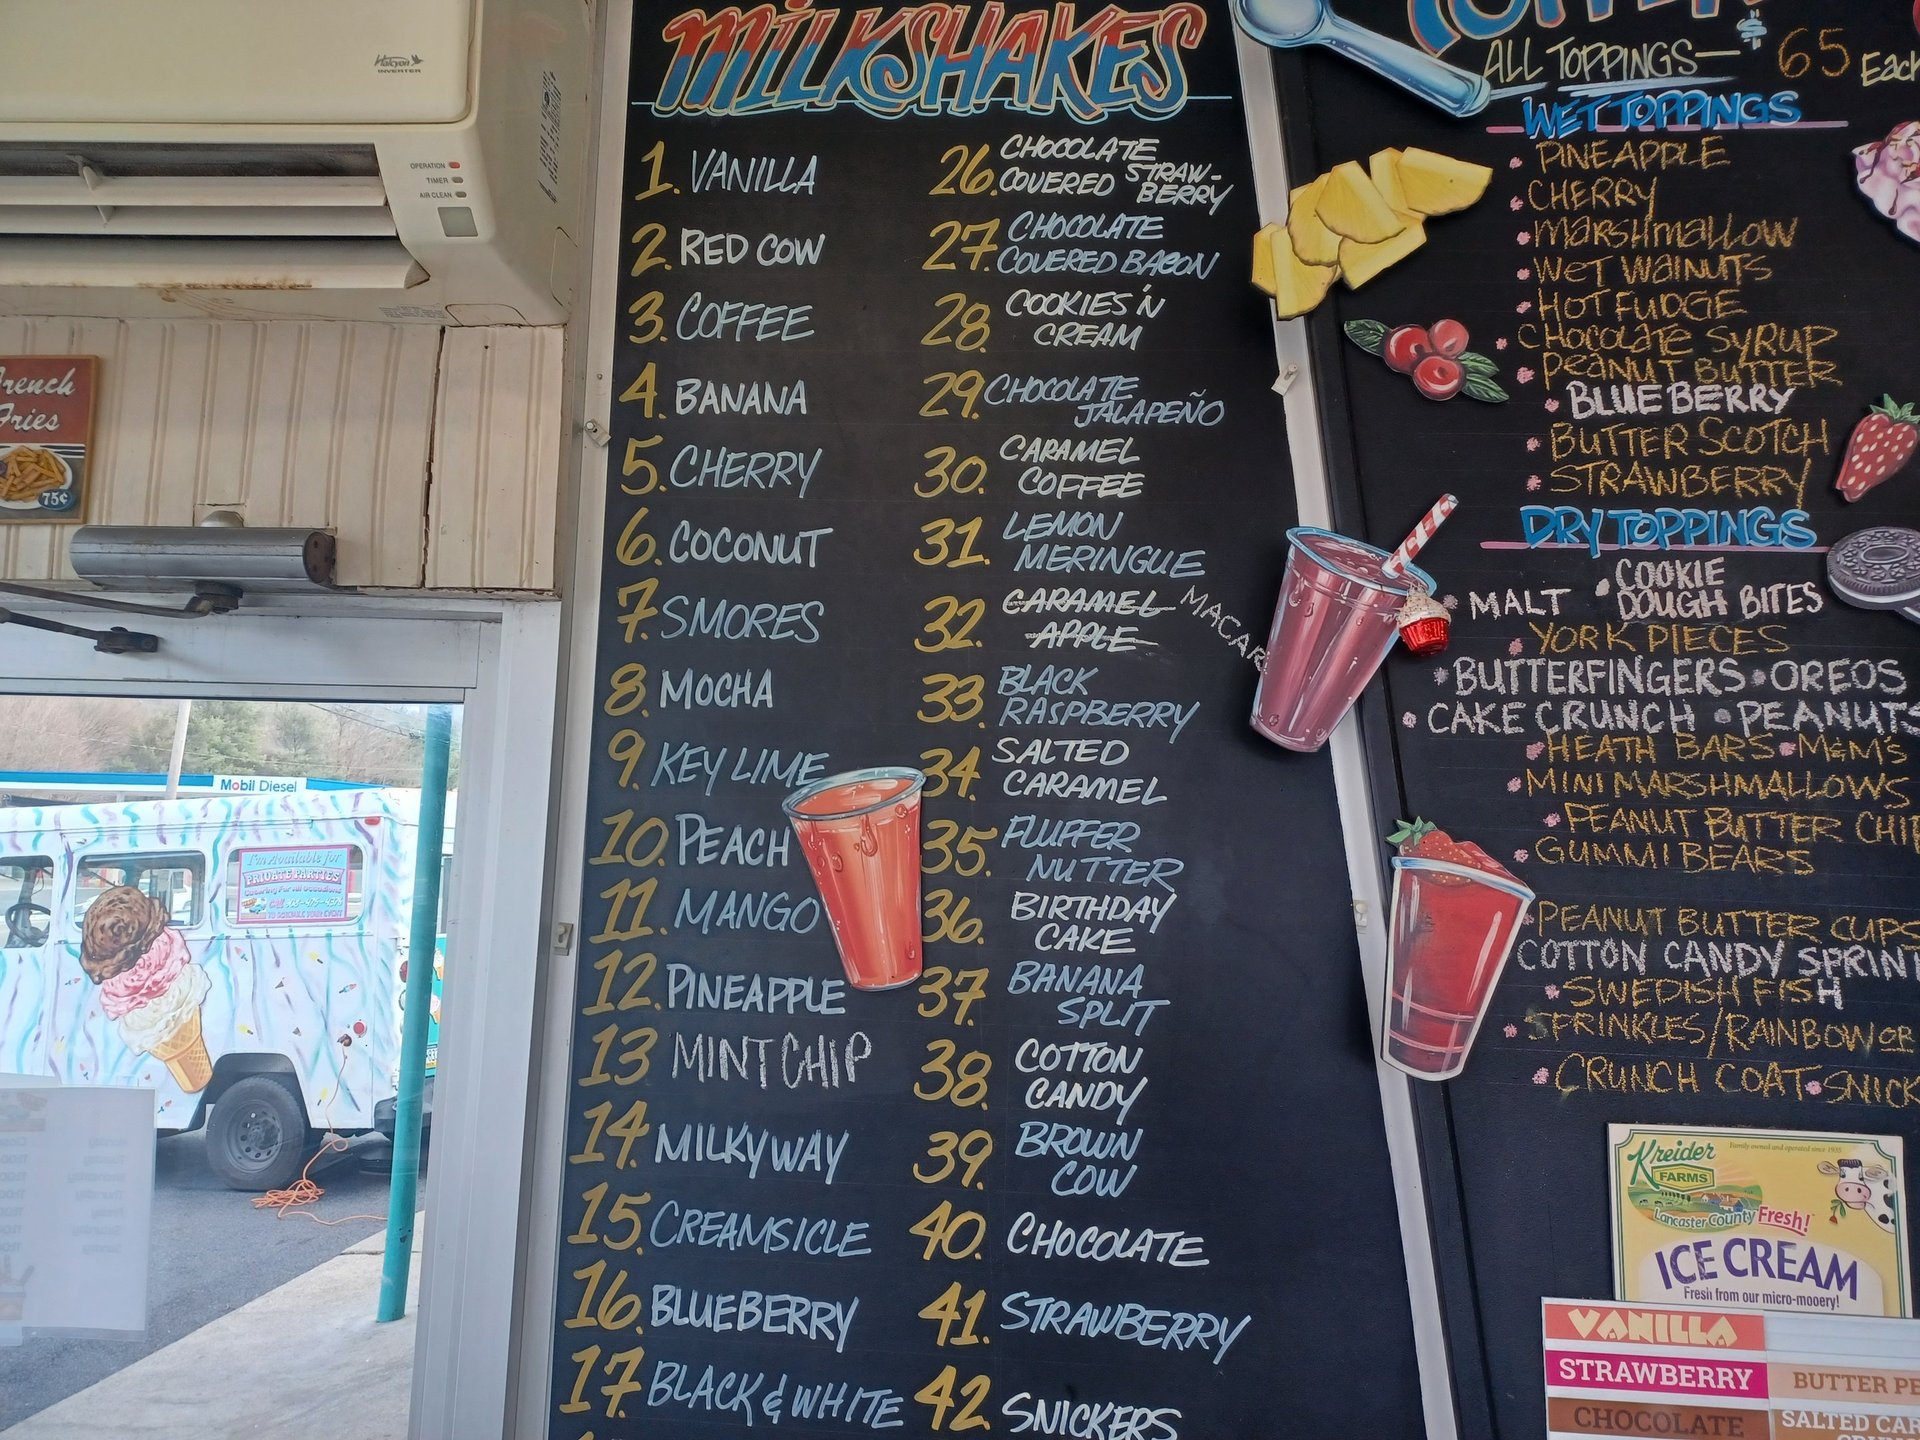 Halcyon
INVERTER
OPERATION
TIMER
AIR CLEAN
French
Fries
75¢
Mobil Diesel
I'm Available for
PRIVATE PARTIES
MILKSHAKES
1. VANILLA
2. RED COW
3. COFFEE
4. BANANA
5. CHERRY
6. COCONUT
7. SMORES
8. MOCHA
9. KEY LIME
10. PEACH
11. MANGO
12. PINEAPPLE
13 MINT CHIP
14. MILKYWAY
15. CREAMSICLE
16. BLUEBERRY
17. BLACK & WHITE
26. CHOCOLATE
COVERED STRAW-
BERRY
27. CHOCOLATE
COVERED BACON
28. COOKIES 'N
CREAM
29. CHOCOLATE
JALAPEÑO
30. CARAMEL
COFFEE
31. LEMON
MERINGUE
32. CARAMEL
APPLE
MACAR
33. BLACK
RASPBERRY
34. SALTED
CARAMEL
35. FLUFFER
NUTTER
36. BIRTHDAY
CAKE
37. BANANA
SPLIT
38. COTTON
CANDY
39. BROWN
COW
40. CHOCOLATE
41. STRAWBERRY
42. SNICKERS
ALL TOPPINGS— $ 65 Each
WET TOPPINGS
PINEAPPLE
CHERRY
MARSHMALLOW
WET WALNUTS
HOT FUDGE
CHOCOLATE SYRUP
PEANUT BUTTER
BLUEBERRY
BUTTER SCOTCH
STRAWBERRY
DRY TOPPINGS
MALT • COOKIE
DOUGH BITES
YORK PIECES
BUTTERFINGERS • OREOS
CAKE CRUNCH • PEANUTS
HEATH BARS • M&M's
MINI MARSHMALLOWS
PEANUT BUTTER CHI
GUMMI BEARS
PEANUT BUTTER CUPS
COTTON CANDY SPRIN
SWEDISH FISH
SPRINKLES/RAINBOW OR
CRUNCH COAT • SNICK
Kreider
FARMS
Family owned and operated since 1935
Lancaster County Fresh!
ICE CREAM
Fresh from our micro-mooery!
VANILLA
STRAWBERRY
BUTTER PE
CHOCOLATE
SALTED CAR